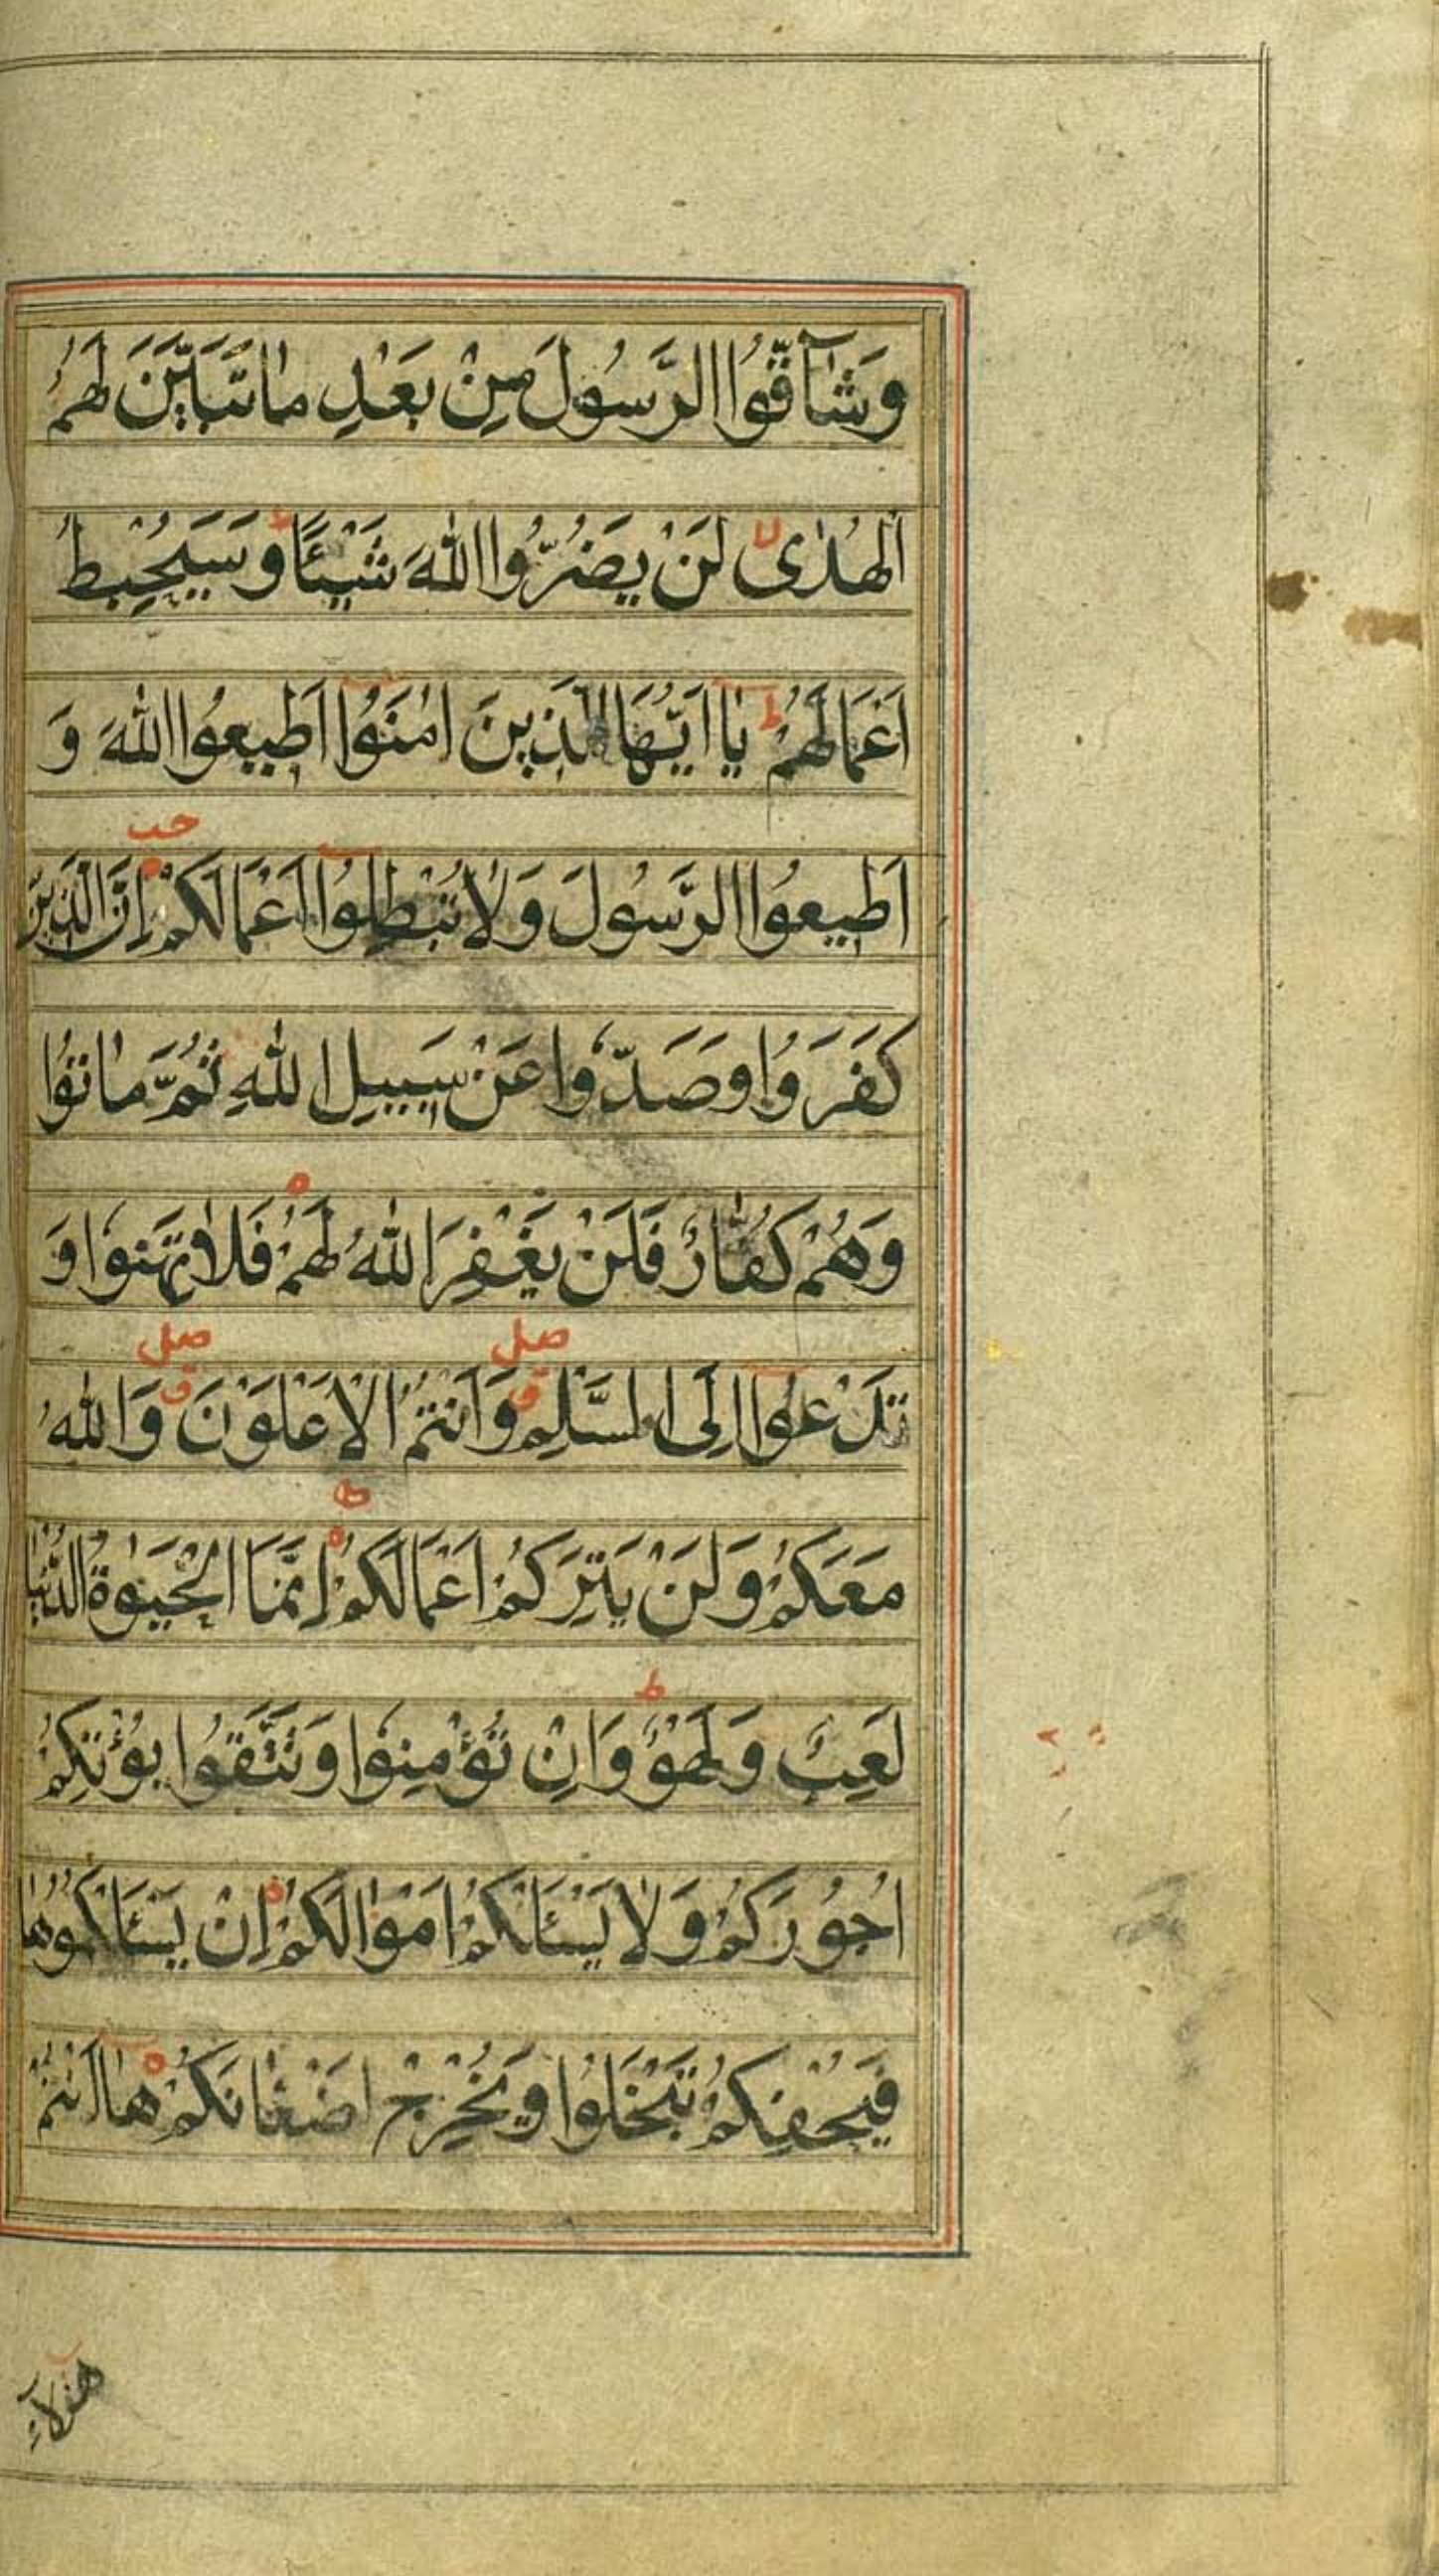 وَشَآقُّوا الرَّسُولَ مِنْ بَعْدِ مَا تَبَيَّنَ لَهُمُ
الْهُدٰى لَنْ يَضُرُّوا اللّٰهَ شَيْئًا وَسَيُحْبِطُ
اَعْمَالَهُمْ يٰا اَيُّهَا الَّذِينَ اٰمَنُوا اَطِيعُوا اللّٰهَ وَ
اَطِيعُوا الرَّسُولَ وَلٰا تُبْطِلُوا اَعْمَالَكُمْ اِنَّ الَّذِينَ
كَفَرُوا وَصَدُّوا عَنْ سَبِيلِ اللّٰهِ ثُمَّ مٰاتُوا
وَهُمْ كُفّٰارٌ فَلَنْ يَغْفِرَ اللّٰهُ لَهُمْ فَلٰا تَهِنُوا وَ
تَدْعُوا اِلَى السَّلْمِ وَاَنْتُمُ الْاَعْلَوْنَ وَاللّٰهُ
مَعَكُمْ وَلَنْ يَتِرَكُمْ اَعْمَالَكُمْ اِنَّمَا الْحَيٰوةُ الدُّنْيٰا
لَعِبٌ وَلَهْوٌ وَاِنْ تُؤْمِنُوا وَتَتَّقُوا يُؤْتِكُمْ
اُجُورَكُمْ وَلٰا يَسْئَلْكُمْ اَمْوٰالَكُمْ اِنْ يَسْئَلْكُمُوهٰا
فَيُحْفِكُمْ تَبْخَلُوا وَيُخْرِجْ اَضْغٰانَكُمْ هٰا اَنْتُمْ
هٰؤُلَاءِ